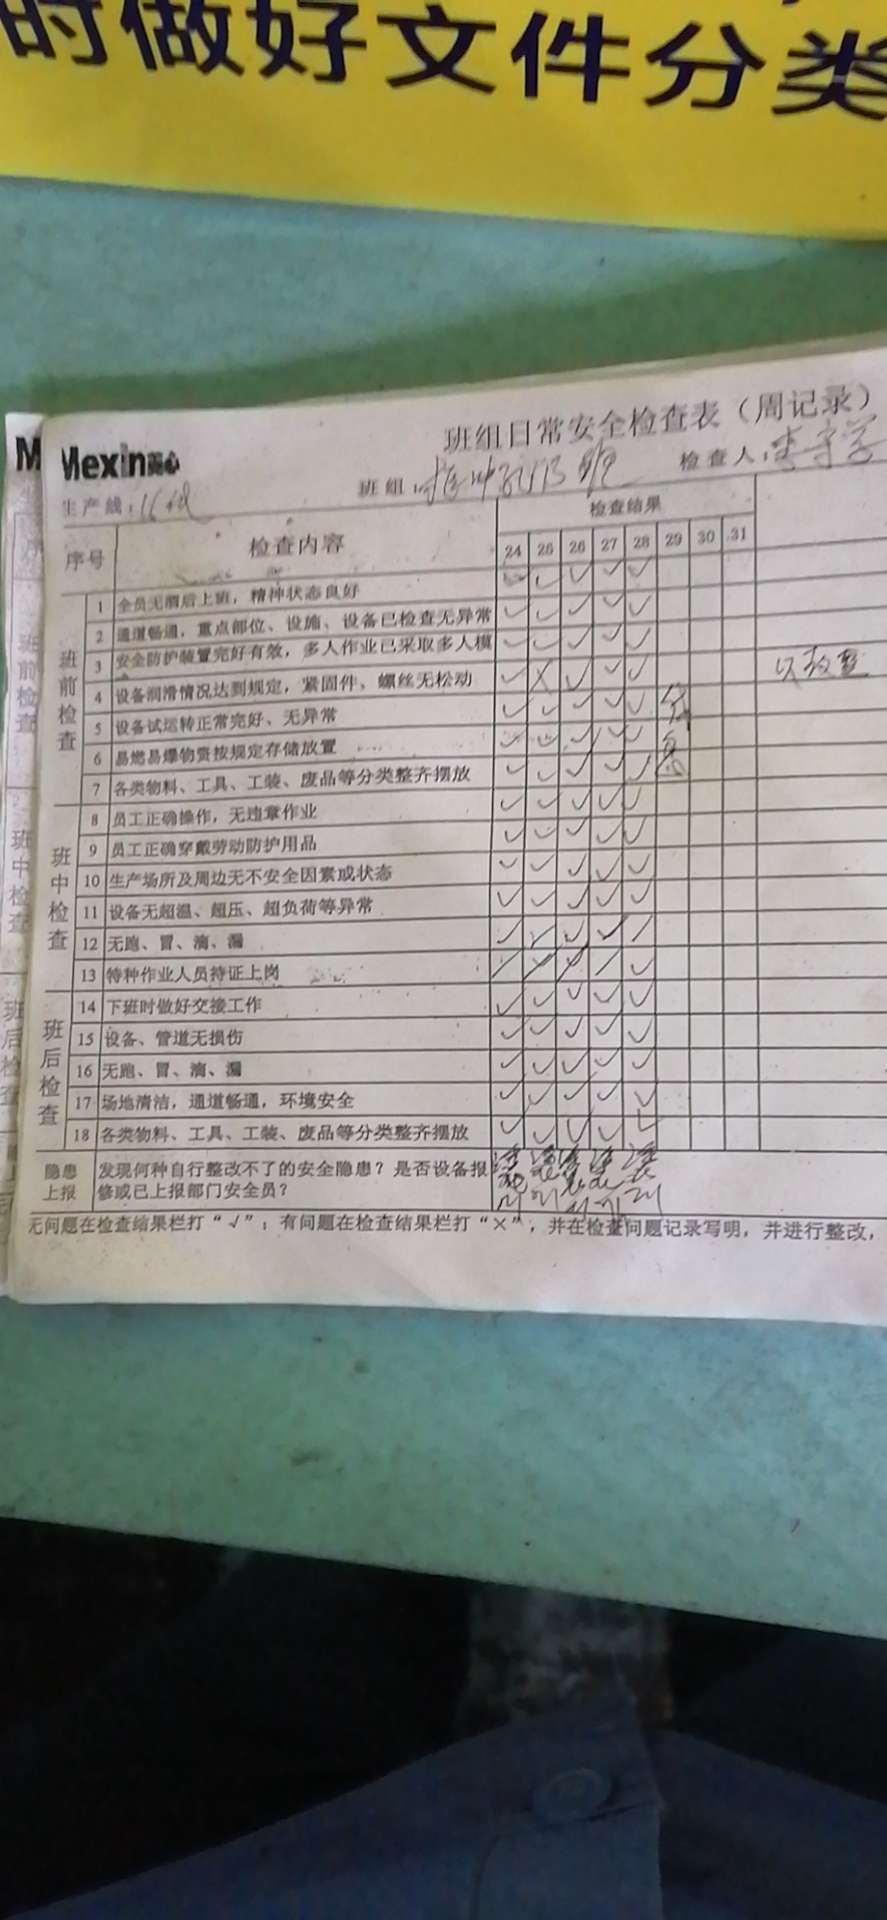 时做好文件分类
Mexin美心
班组日常安全检查表（周记录）
生产线：16线 班组： 检查人：李守学
序号 检查内容 检查结果
24 25 26 27 28 29 30 31
班前检查
1 全员无酒后上班，精神状态良好 ✓ ✓ ✓ ✓ ✓
2 通道畅通，重点部位、设施、设备已检查无异常 ✓ ✓ ✓ ✓ ✓
3 安全防护装置完好有效，多人作业已采取多人模 ✓ ✓ ✓ ✓ ✓
4 设备润滑情况达到规定，紧固件、螺丝无松动 ✓ X ✓ ✓ ✓ 整
5 设备试运转正常完好、无异常 ✓ ✓ ✓ ✓ ✓
6 易燃易爆物资按规定存储放置 ✓ ✓ ✓ ✓ ✓
7 各类物料、工具、工装、废品等分类整齐摆放 ✓ ✓ ✓ ✓ ✓
班中检查
8 员工正确操作，无违章作业 ✓ ✓ ✓ ✓ ✓
9 员工正确穿戴劳动防护用品 ✓ ✓ ✓ ✓ ✓
10 生产场所及周边无不安全因素或状态 ✓ ✓ ✓ ✓ ✓
11 设备无超温、超压、超负荷等异常 ✓ ✓ ✓ ✓ ✓
12 无跑、冒、滴、漏 ✓ ✓ ✓ ✓ /
13 特种作业人员持证上岗 / / / / ✓
班后检查
14 下班时做好交接工作 ✓ ✓ ✓ ✓ ✓
15 设备、管道无损伤 ✓ ✓ ✓ ✓ ✓
16 无跑、冒、滴、漏 ✓ ✓ ✓ ✓ ✓
17 场地清洁，通道畅通，环境安全 ✓ ✓ ✓ ✓ ✓
18 各类物料、工具、工装、废品等分类整齐摆放 ✓ ✓ ✓ ✓ ✓
隐患上报 发现何种自行整改不了的安全隐患？是否设备报
修或已上报部门安全员？
无问题在检查结果栏打“√”；有问题在检查结果栏打“×”，并在检查问题记录写明，并进行整改，
班前检查
班中检查
班后检查